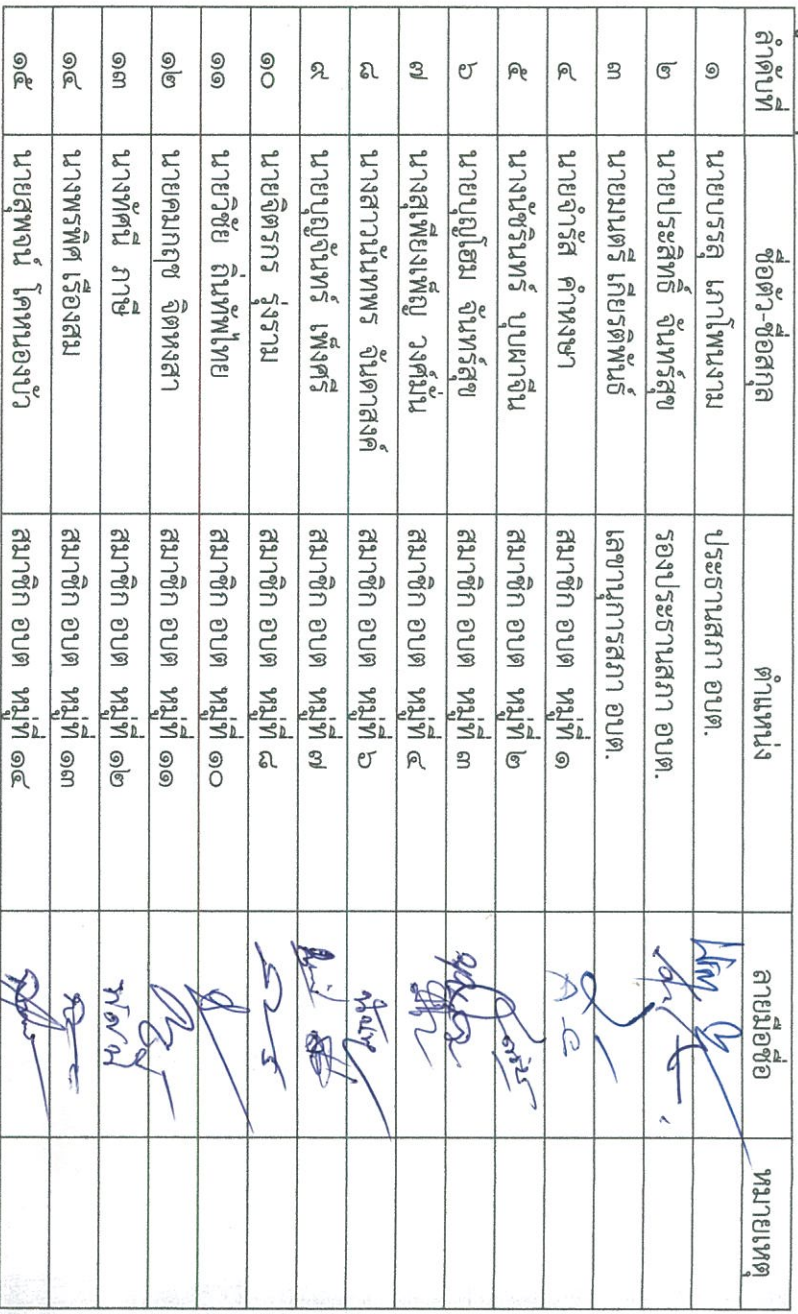 ลำดับที่ ชื่อตัว-ชื่อสกุล ตำแหน่ง ลายมือชื่อ หมายเหตุ
๑ นายบรรลุ เภาโพนงาม ประธานสภา อบต.
๒ นายประสิทธิ์ จันทร์สุข รองประธานสภา อบต.
๓ นายมนตรี เกียรติพันธ์ เลขานุการสภา อบต.
๔ นายจำรัส คำหงษา สมาชิก อบต หมู่ที่ ๑
๕ นางนัชรินทร์ บุบผาจีน สมาชิก อบต หมู่ที่ ๒
๖ นายบุญโฮม จันทร์สุข สมาชิก อบต หมู่ที่ ๓
๗ นางสุเพียงเพ็ญ วงศ์มั่น สมาชิก อบต หมู่ที่ ๔
๘ นางสาวนันทพร จันดาสงค์ สมาชิก อบต หมู่ที่ ๖
๙ นายบุญจันทร์ เพ็งศรี สมาชิก อบต หมู่ที่ ๗
๑๐ นายจิตรกร รุ่งราม สมาชิก อบต หมู่ที่ ๘
๑๑ นายวิชัย ถิ่นทัพไทย สมาชิก อบต หมู่ที่ ๑๐
๑๒ นายคมกฤช จิตหงสา สมาชิก อบต หมู่ที่ ๑๑
๑๓ นางทัศนี ภาษี สมาชิก อบต หมู่ที่ ๑๒
๑๔ นางพรพิศ เรืองสม สมาชิก อบต หมู่ที่ ๑๓
๑๕ นายสุพจน์ โคหนองบัว สมาชิก อบต หมู่ที่ ๑๔